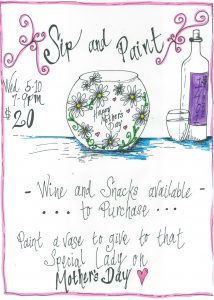 Sip and Paint
Wed 5-10
7-9pm
$20
Happy
Mother's
Day
- Wine and Snacks available -
... to Purchase ...
Paint a vase to give to that
Special Lady on
Mother's Day